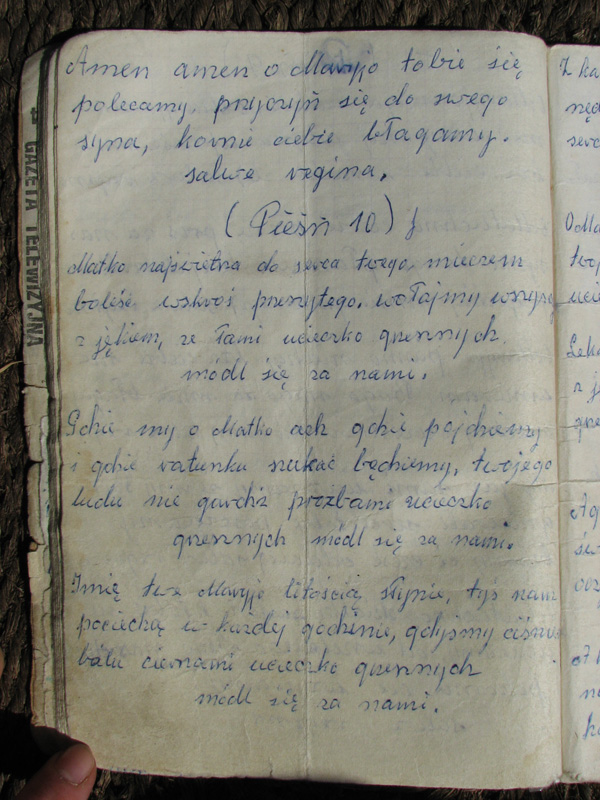 Amen amen o Maryjo tobie się
polecamy, przyczyń się do swego
syna, kornie ciebie błagamy.
salwe regina.
(Pieśń 10)
Matko najświetrza do serca twego, mieczem
boleśc wskroś przeszytego, wołajmy wszyscy
z jękiem, ze łzami ucieczko grzesznych
módl się za nami.
Gdzie my o Matko ach gdzie pójdziemy
i gdzie ratunku szukać będziemy, twojego
ludu nie gardź prożbami ucieczko
grzesznych módl się za nami.
Imię twe Maryjo litością słynie, tyś nam
pociechą w każdej godzinie, gdyśmy ciśnie
bólu cierniami ucieczko grzesznych
módl się za nami.
GAZETA TELEWIZYJNA
Z ka
serc
twoj
z j